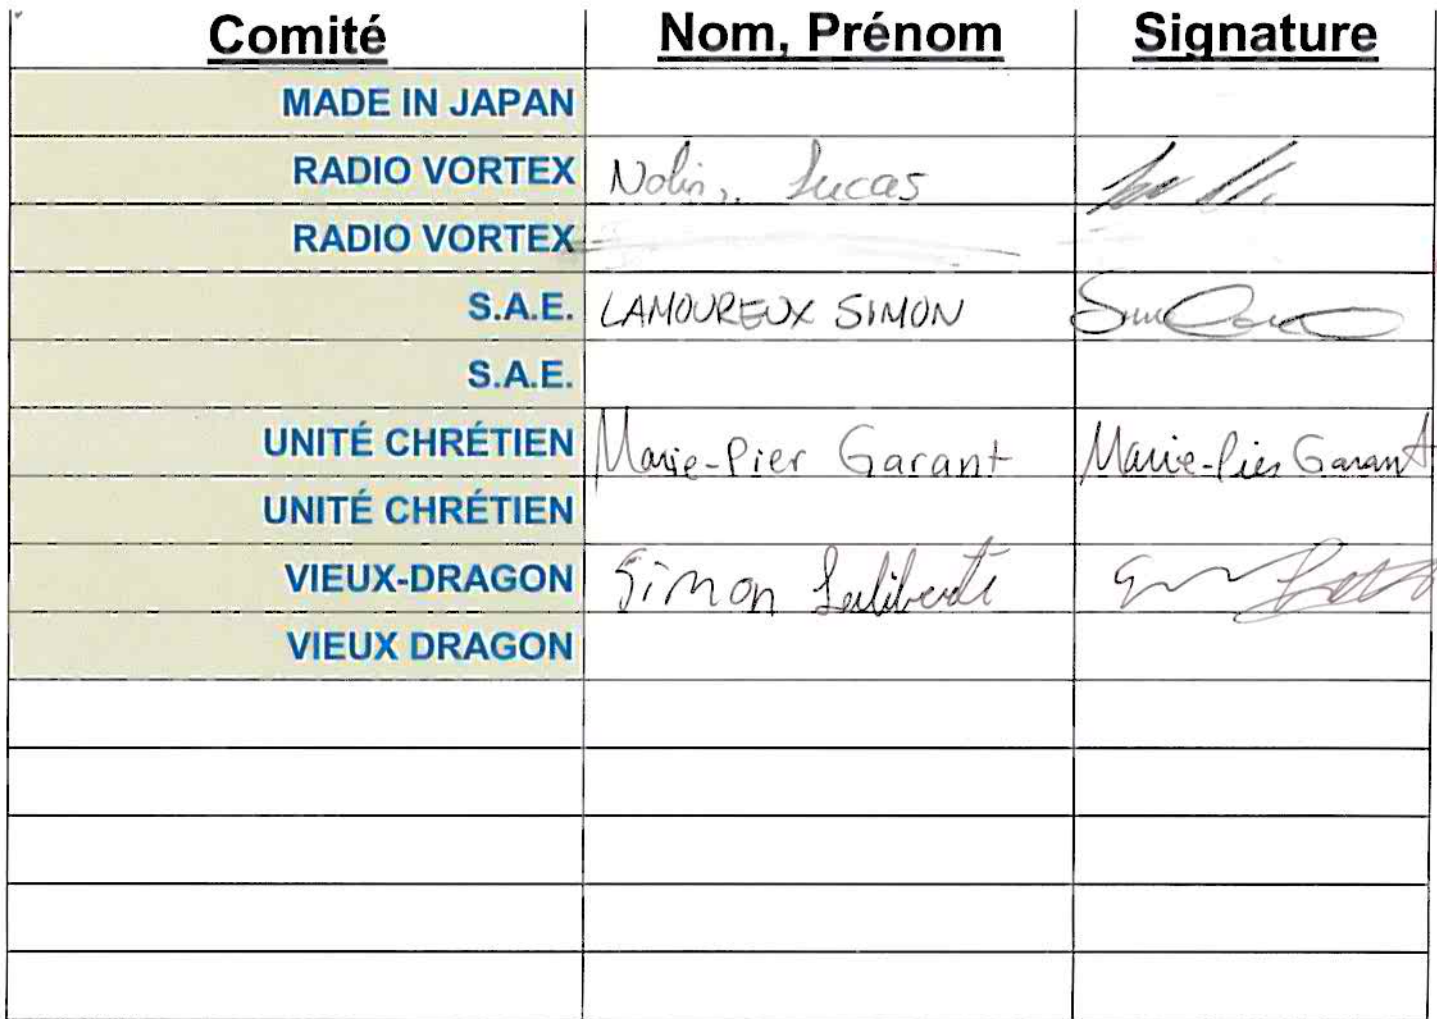 Comité Nom, Prénom Signature
MADE IN JAPAN
RADIO VORTEX Nolin, Lucas
RADIO VORTEX
S.A.E. LAMOUREUX SIMON
S.A.E.
UNITÉ CHRÉTIEN Marie-Pier Garant Marie-Pier Garant
UNITÉ CHRÉTIEN
VIEUX-DRAGON Simon Laliberté
VIEUX DRAGON